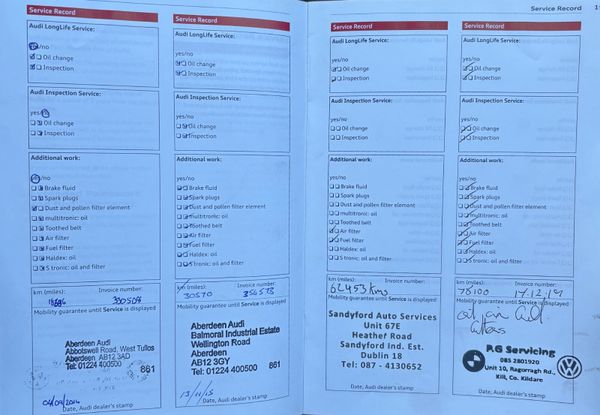 Service Record
Audi LongLife Service:
yes/no
Oil change
Inspection
Audi Inspection Service:
yes/no
Oil change
Inspection
Additional work:
yes/no
Brake fluid
Spark plugs
Dust and pollen filter element
multitronic: oil
Toothed belt
Air filter
Fuel filter
Haldex: oil
S tronic: oil and filter
km (miles): Invoice number:
Mobility guarantee until Service is displayed
Aberdeen Audi
Abbotswell Road, West Tullos
Aberdeen AB12 3AD
Tel: 01224 400500 861
Date, Audi dealer's stamp
Service Record
Audi LongLife Service:
yes/no
Oil change
Inspection
Audi Inspection Service:
yes/no
Oil change
Inspection
Additional work:
yes/no
Brake fluid
Spark plugs
Dust and pollen filter element
multitronic: oil
Toothed belt
Air filter
Fuel filter
Haldex: oil
S tronic: oil and filter
km (miles): Invoice number:
30570
Mobility guarantee until Service is displayed
Aberdeen Audi
Balmoral Industrial Estate
Wellington Road
Aberdeen
AB12 3GY
Tel: 01224 400500 861
13/11/15
Date, Audi dealer's stamp
Service Record
Audi LongLife Service:
yes/no
Oil change
Inspection
Audi Inspection Service:
yes/no
Oil change
Inspection
Additional work:
yes/no
Brake fluid
Spark plugs
Dust and pollen filter element
multitronic: oil
Toothed belt
Air filter
Fuel filter
Haldex: oil
S tronic: oil and filter
km (miles): Invoice number:
62453 kms
Mobility guarantee until Service is displayed
Sandyford Auto Services
Unit 67E
Heather Road
Sandyford Ind. Est.
Dublin 18
Tel: 087 - 4130652
Date, Audi dealer's stamp
Service Record
Service Record
Audi LongLife Service:
yes/no
Oil change
Inspection
Audi Inspection Service:
yes/no
Oil change
Inspection
Additional work:
yes/no
Brake fluid
Spark plugs
Dust and pollen filter element
multitronic: oil
Toothed belt
Air filter
Fuel filter
Haldex: oil
S tronic: oil and filter
km (miles): Invoice number:
78100 17.12.19
Mobility guarantee until Service is displayed
P.G Servicing
085 2801920
Unit 10, Ragorragh Rd.,
Kill, Co. Kildare
Date, Audi dealer's stamp